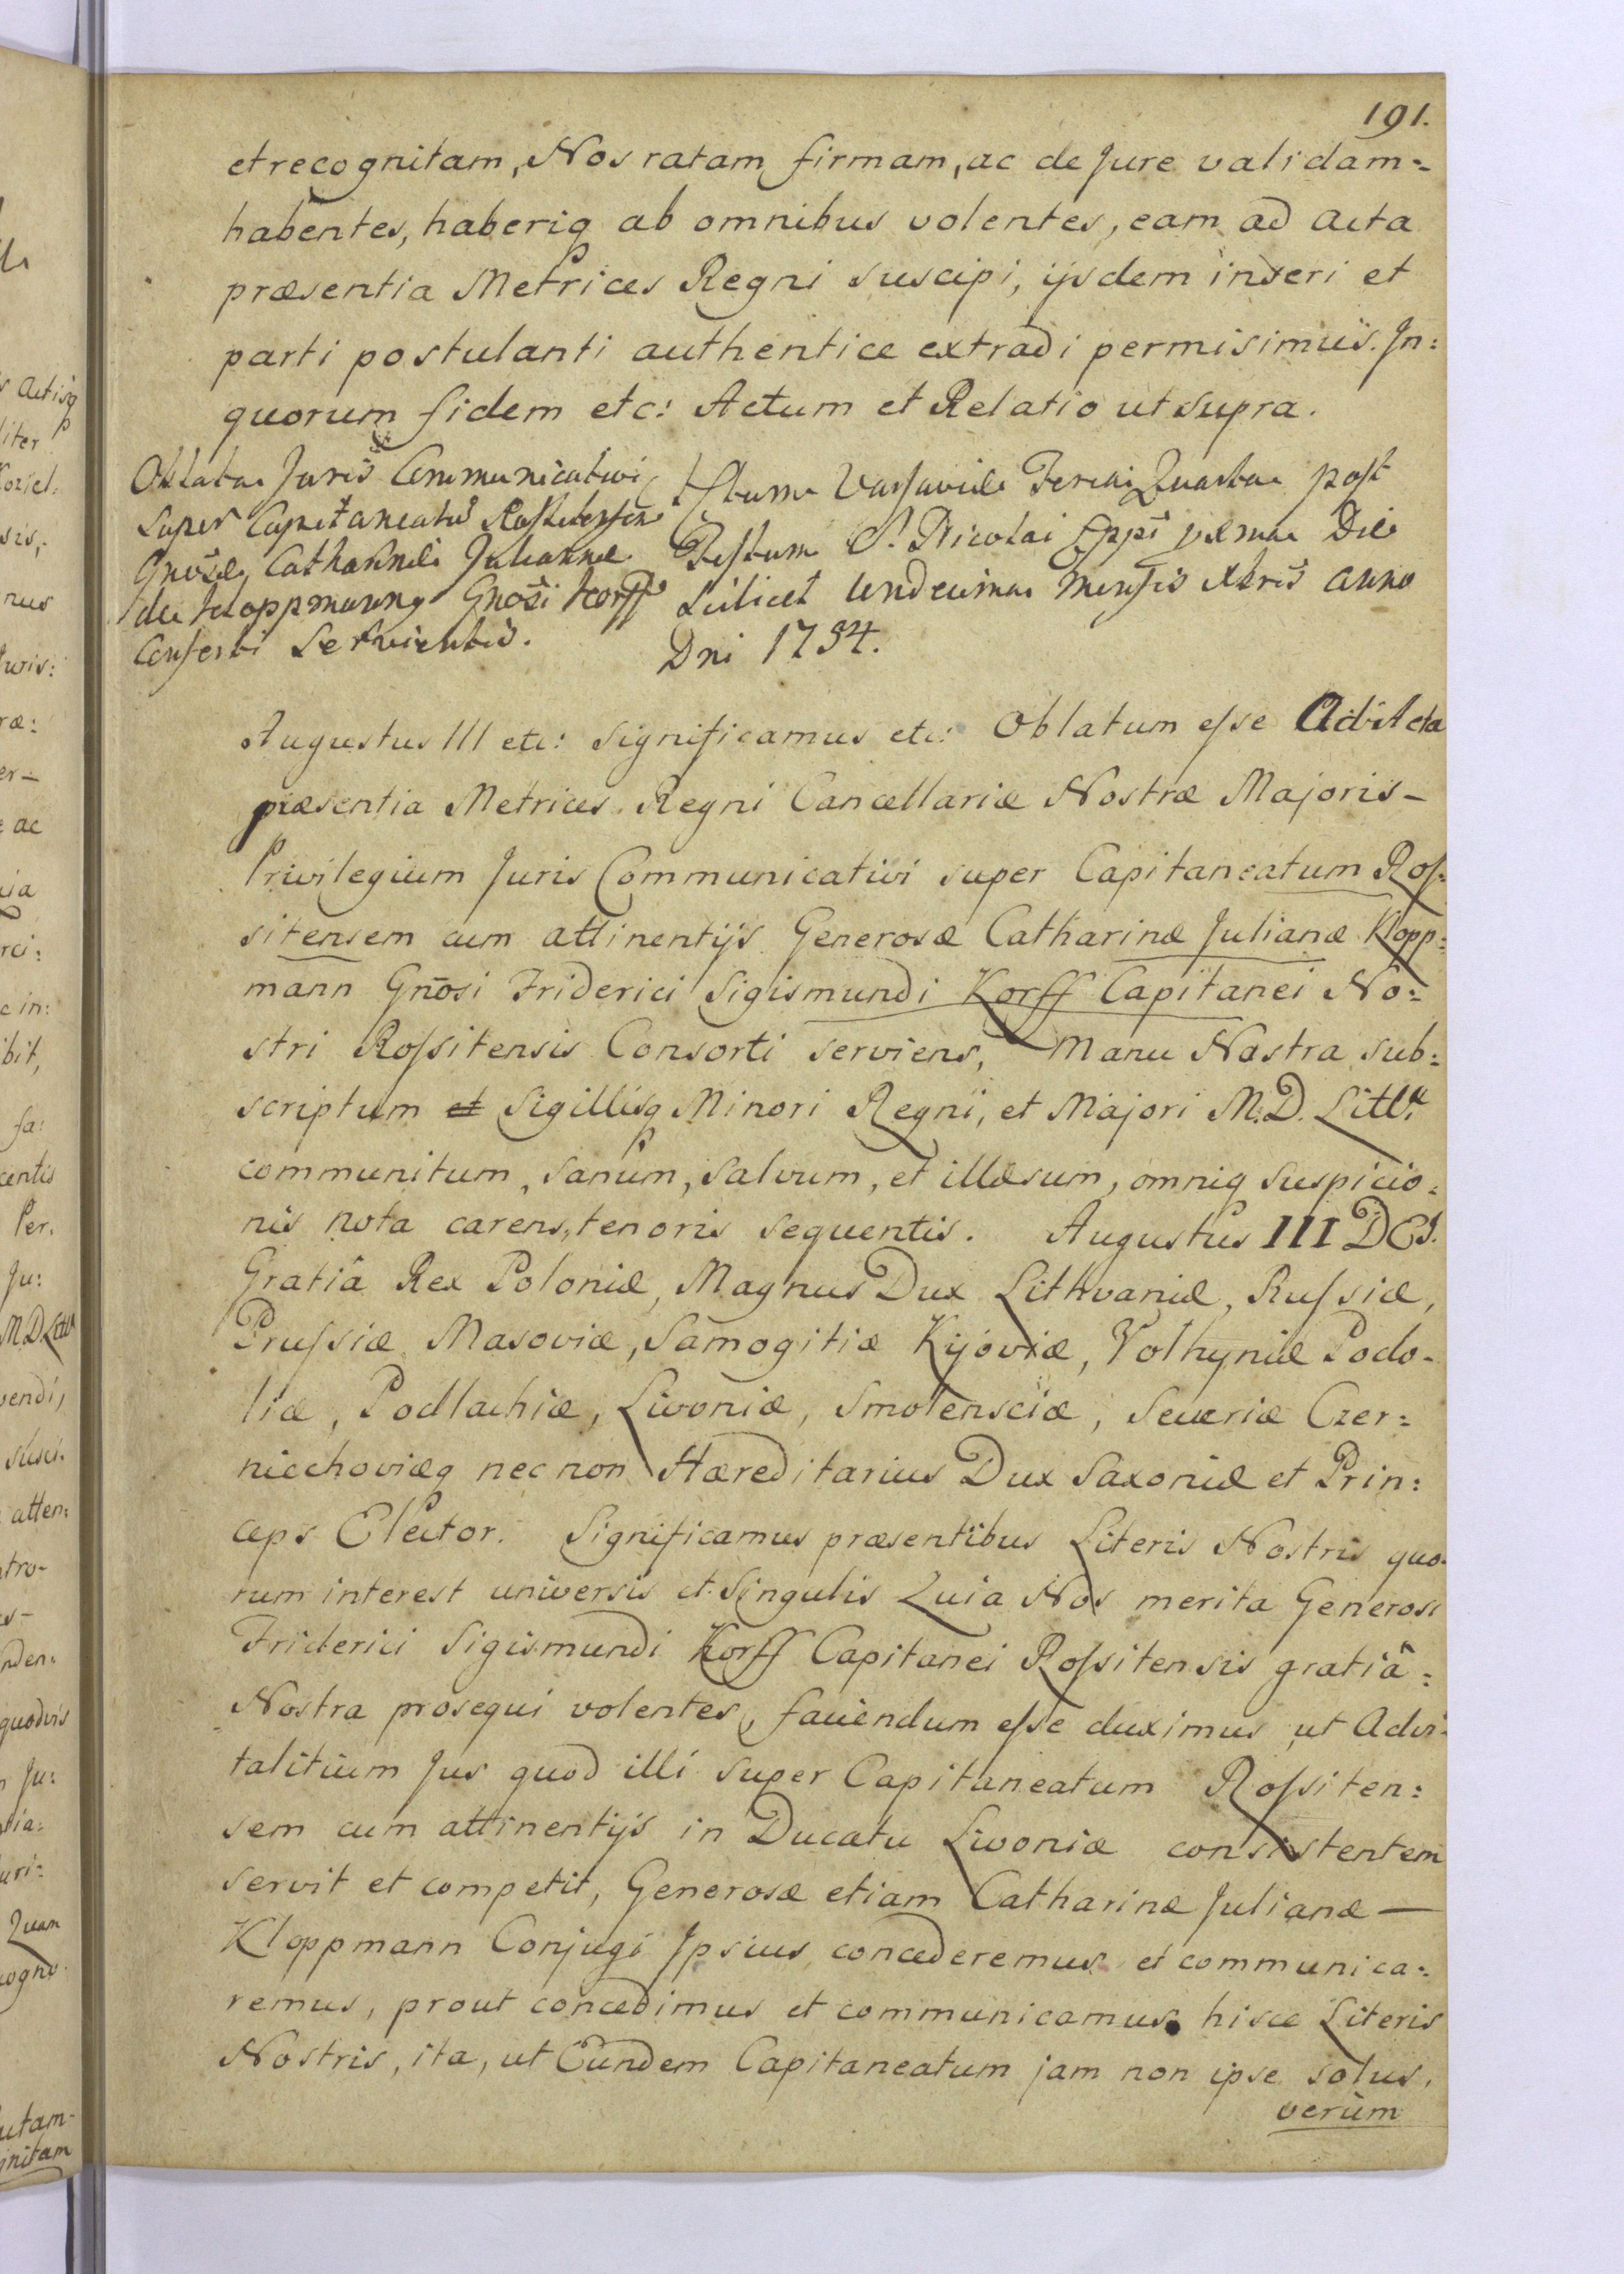 191.
et recognitam, Nos ratam firmam, ac de Jure validam=
habentes, haberiq ab omnibus volentes, eam ad Acta
præsentia Metrices Regni suscipi, ijsdem inseri et
parti postulanti authentice extradi permisimus. In=
quorum fidem etc: Actum et Relatio ut supra.
Oblata Juris Communicativi
super Capitaneatu Rossitensem
Gnosæ Catharinæ Julianæ
de Kloppmann Gnosi Korff
Consorti Servientis.
Actum Varsaviæ Feria Quarta post
Festum S. Nicolai Eppi proxima Die
Scilicet Undecima Mensis Xbris Anno
Dni 1754.
Augustus III etc: Significamus etc: Oblatum esse Ad Acta
præsentia Metrices Regni Cancellariæ Nostræ Majoris–
Privilegium Juris Communicativi super Capitaneatum Ros=
sitensem cum attinentijs Generosæ Catharinæ Julianæ Klopp=
mann Gnosi Friderici Sigismundi Korff Capitanei No=
stri Rossitensis Consorti serviens, Manu Nostra sub=
scriptum et Sigillisq Minori Regni, et Majori M.D. Littu
communitum, sanum, salvum, et illæsum, omniq suspicio=
nis nota carens, tenoris sequentis. Augustus III DEI.
Gratiâ Rex Poloniæ, Magnus Dux Lithvaniæ, Russiæ,
Prussiæ Masoviæ, Samogitiæ Kijoviæ, Volhyniæ Podo-
liæ, Podlachiæ, Livoniæ, Smolensciæ, Severiæ Czer=
niechoviæq nec non Hæreditarius Dux Saxoniæ et Prin=
ceps Elector. Significamus præsentibus Literis Nostris quo-
rum interest universis et Singulis Quia Nos merita Generosi
Friderici Sigismundi Korff Capitanei Rossitensis gratiâ=
Nostra prosequi volentes, faciendum esse duximus ut Advi-
talitium Jus quod illi super Capitaneatum Rossiten=
sem cum attinentijs in Ducatu Livoniæ consistentem
servit et competit, Generosæ etiam Catharinæ Julianæ —
Kloppmann Conjugi Ipsius concederemus et communica=
remus, prout concedimus et communicamus hisce Literis
Nostris, ita, ut Eundem Capitaneatum jam non ipse solus,
verùm